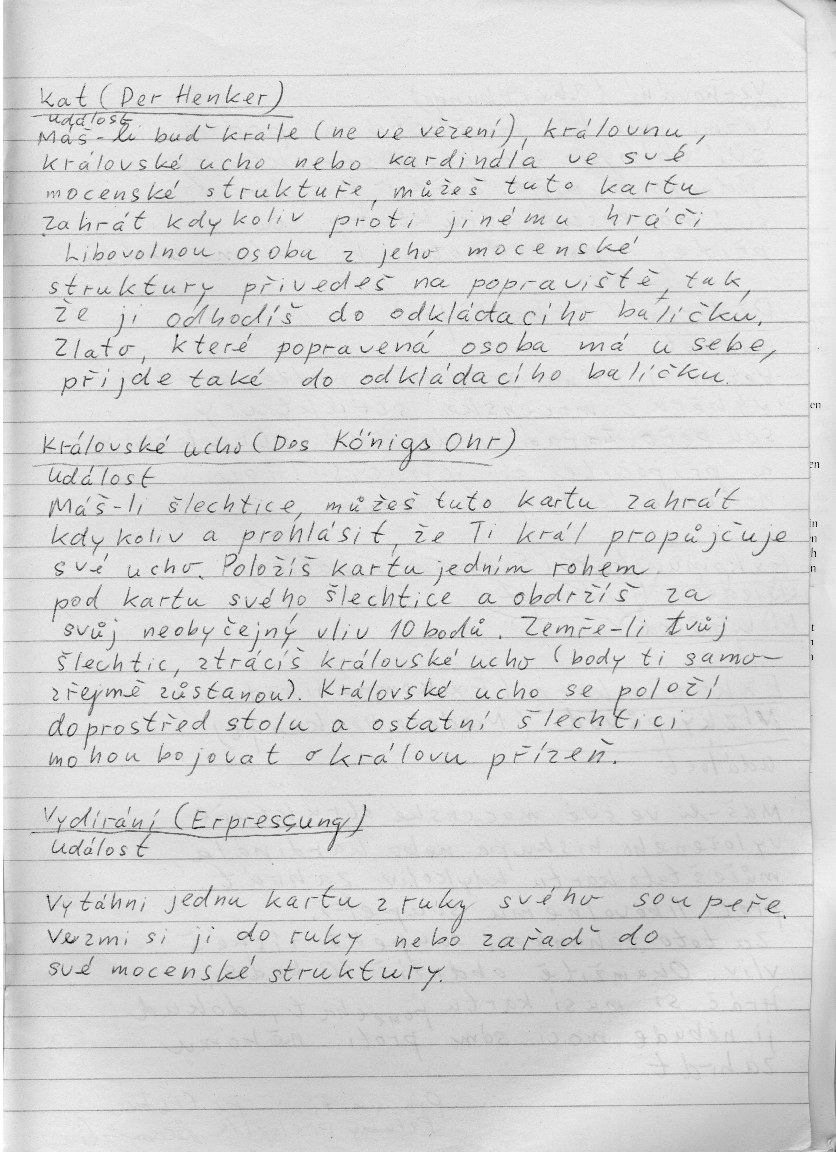 Kat (Der Henker)
Událost
Máš-li buď krále (ne ve vězení), královnu,
královské ucho nebo kardinála ve své
mocenské struktuře, můžeš tuto kartu
zahrát kdykoliv proti jinému hráči
Libovolnou osobu z jeho mocenské
struktury přivedeš na popraviště, tak,
že ji odhodíš do odkládacího balíčku.
Zlato, které popravená osoba má u sebe,
přijde také do odkládacího balíčku.
Královské ucho (Des Königs Ohr)
Událost
Máš-li šlechtice, můžeš tuto kartu zahrát
kdykoliv a prohlásit, že Ti král propůjčuje
své ucho. Položíš kartu jedním rohem
pod kartu svého šlechtice a obdržíš za
svůj neobyčejný vliv 10 bodů. Zemře-li tvůj
šlechtic, ztrácíš královské ucho (body ti samo-
zřejmě zůstanou). Královské ucho se položí
doprostřed stolu a ostatní šlechtici
mohou bojovat o královu přízeň.
Vydírání (Erpressung)
Událost
Vytáhni jednu kartu z ruky svého soupeře.
Vezmi si ji do ruky nebo zařaď do
své mocenské struktury.